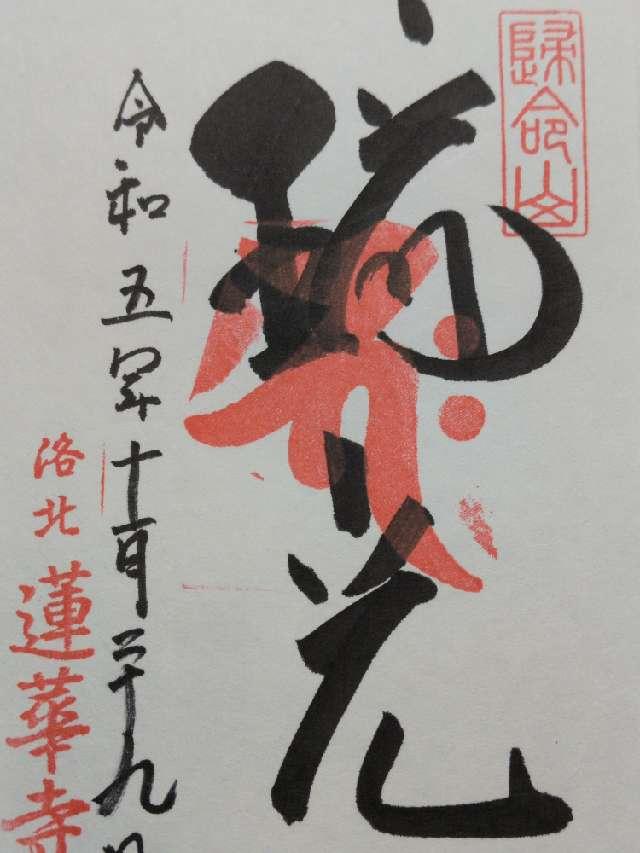 歸命山
花
令和五年十一月二十九日
洛北 蓮華寺